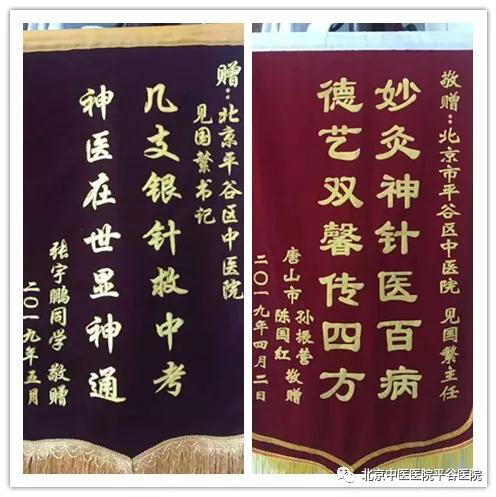 赠：北京平谷区中医院
见国繁书记
几支银针救中考
神医在世显神通
张宇鹏同学 敬赠
二〇一九年五月
敬赠：北京市平谷区中医院 见国繁主任
妙灸神针医百病
德艺双馨传四方
唐山市 孙振营
陈国红 敬赠
二〇一九年四月二日
北京中医医院平谷医院